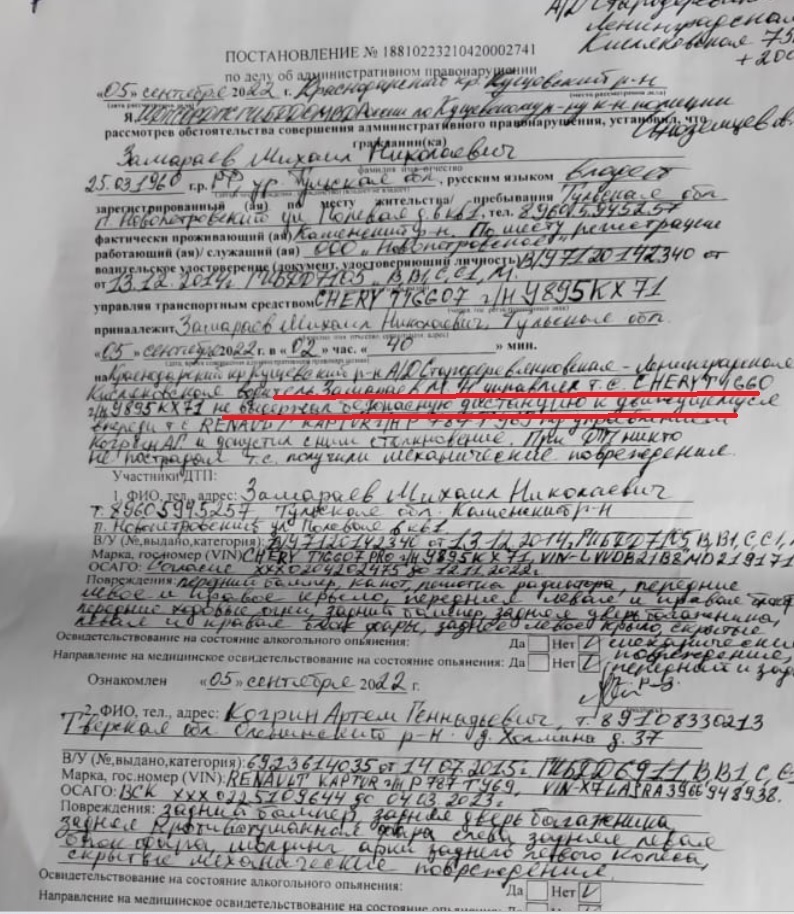 А/Д Стародеревян
Ленинградская
Кисляковская 75
+ 200
ПОСТАНОВЛЕНИЕ № 18810223210420002741
по делу об административном правонарушении
«05» сентября 2022 г. Краснодарский кр. Кущевский р-н
(дата рассмотрения дела) (место рассмотрения дела)
Я, России по Кущевскому р-ну к-н полиции
рассмотрев обстоятельства совершения административного правонарушения, установил, что
Иноземцев
гражданин(ка)
Замараев Михаил Николаевич
фамилия имя отчество
25.03.1960 г.р. РФ ур. Тульская обл., русским языком владеет
зарегистрированный (ая) по месту жительства/ пребывания Тульская обл.
п. Новопетровский ул Полевая д.6 кв1, тел. 89605945257
фактически проживающий (ая) Каменский р-н. По месту регистрации
работающий (ая)/ служащий (ая) ООО "Новопетровское"
водительское удостоверение (документ, удостоверяющий личность) В/У 7120142340 от
от 13.12.2014г. ГИБДД 7105, В, В1, С, С1, М.
управляя транспортным средством CHERY TIGGO7 г/н У895КХ71
принадлежит Замараев Михаил Николаевич, Тульская обл.
«05» сентября 2022 г. в « 02 » час. « 40 » мин.
на Краснодарский кр Кущевский р-н А/Д Стародеревянковская - Ленинградская
Кисляковская водитель Замараев М.Н управляя т.с. CHERY TIGGO
г/н У895КХ71 не выдержал безопасную дистанцию к движущемуся
впереди т.с RENAULT KAPTUR г/н Р787ТУ69 под управлением
Когрин АГ и допустил с ним столкновение. При ДТП никто
не пострадал т.с. получили механические повреждения.
Участники ДТП:
1. ФИО, тел, адрес: Замараев Михаил Николаевич
т. 89605945257, Тульская обл. Каменский р-н
п. Новопетровский ул Полевая 6 кв1
В/У (№,выдано,категория): 7120142340 от 13.12.2014, ГИБДД 7105, В, В1, С, С1,
Марка, гос.номер (VIN) CHERY TIGGO7 PRO г/н У895КХ71, VIN-LVVDB21B8MD219171
ОСАГО: Согласие ХХХ0204202475 до 12.11.2022г.
Повреждения: передний бампер, капот, решетка радиатора, передние
левое и правое крыло, передняя левая и правая блок
передние ходовые огни, задний бампер, задняя дверь багажника,
левая и правая блок фары, заднее левое крыло, скрытые
Освидетельствование на состояние алкогольного опьянения: Да Нет V механические
Направление на медицинское освидетельствование на состояние опьянения: Да Нет V повреждения,
передний и зад
Ознакомлен «05» сентября 2022 г.
2. ФИО, тел., адрес: Когрин Артем Геннадьевич, т. 89108330213
Тверская обл. Оленинский р-н. д. Холмина д. 37
В/У (№,выдано,категория): 6923614035 от 14.07.2015г. ГИБДД 6911, В, В1, С, С
Марка, гос.номер (VIN): RENAULT KAPTUR г/н Р787ТУ69, VIN-X7LASRA3966948938.
ОСАГО: ВСК ХХХ 0225109644 до 04.03.2023г.
Повреждения: задний бампер, задняя дверь багажника,
задняя противотуманная фара слева, задняя левая
блок фара, молдинг арки заднего левого колеса,
скрытые механические повреждения.
Освидетельствование на состояние алкогольного опьянения: Да Нет V
Направление на медицинское освидетельствование на состояние опьянения: Да Нет